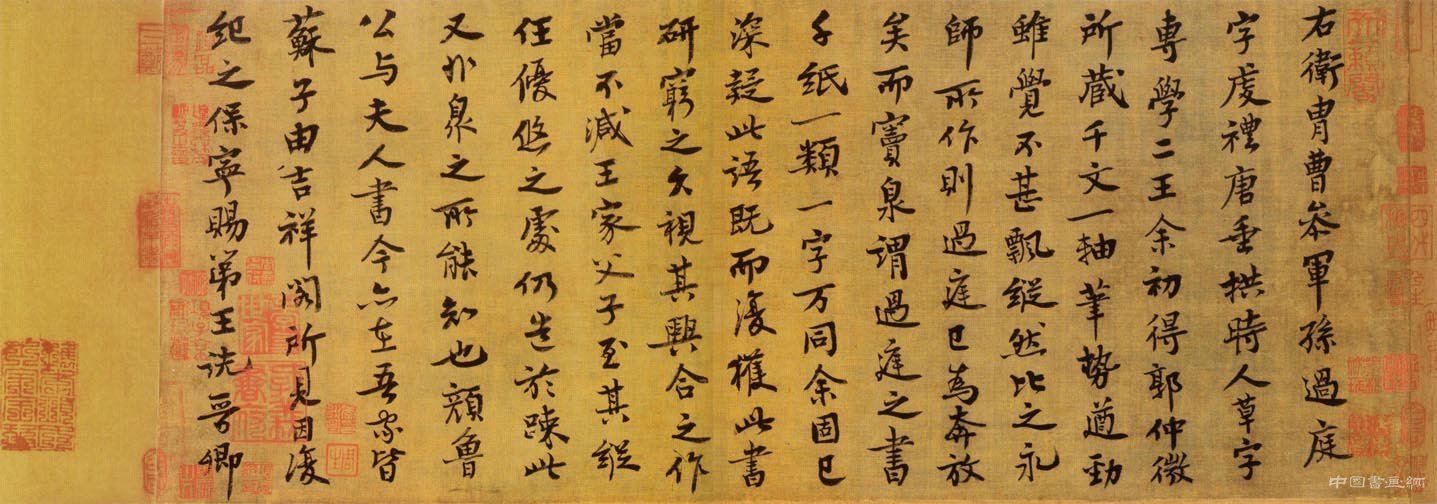 右衛胄曹叅軍孫過庭
字虔禮唐垂拱時人草字
専學二王余初得郭仲微
所蔵千文一軸筆勢遒勁
雖覺不甚飄縱然比之永
師所作則過庭已為奔放
矣而竇泉謂過庭之書
千紙一類一字万同余固已
深疑此語既而復獲此書
研窮之久視其興合之作
當不減王家父子至其縱
任優悠之處仍造於踈此
又非泉之所能知也顔魯
公与夫人書今亦在吾家皆
蘇子由吉祥閣所見因復
紀之保寧賜苐王詵晉卿
中国書畫網